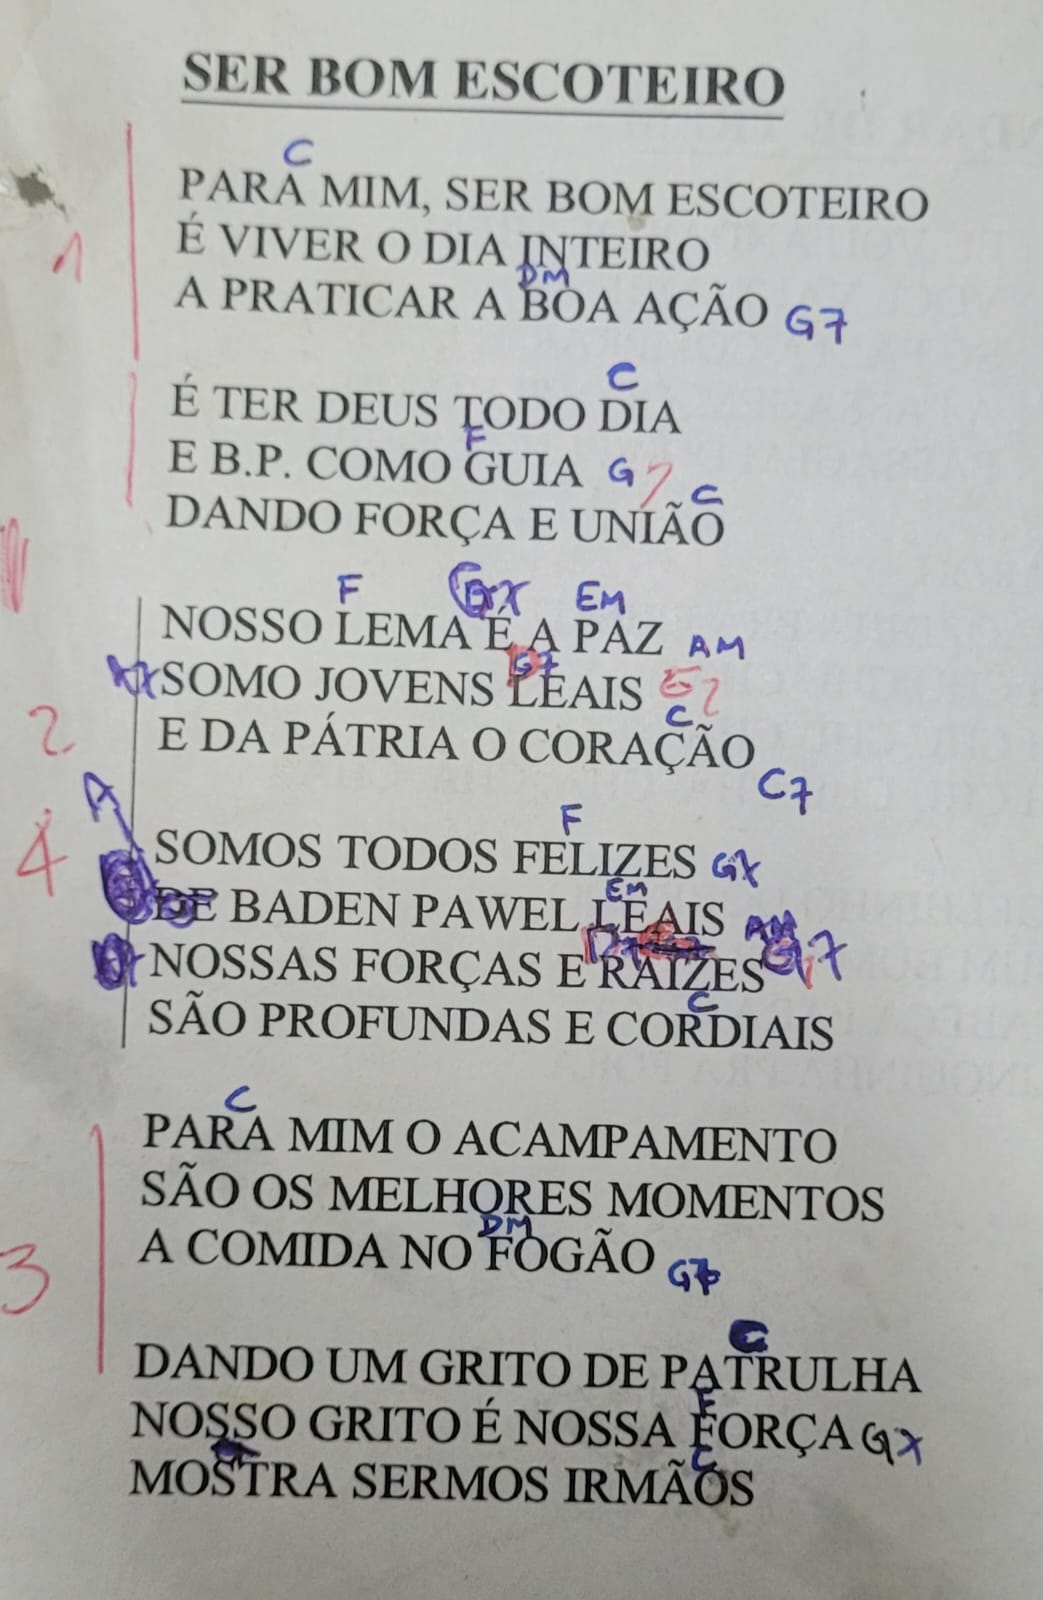 SER BOM ESCOTEIRO
C
PARA MIM, SER BOM ESCOTEIRO
É VIVER O DIA INTEIRO
1
DM
A PRATICAR A BOA AÇÃO G7
C
É TER DEUS TODO DIA
F
E B.P. COMO GUIA G7
C
DANDO FORÇA E UNIÃO
F EM
NOSSO LEMA É A PAZ AM
G7
SOMO JOVENS LEAIS
C
2
E DA PÁTRIA O CORAÇÃO
C7
A
F
4
SOMOS TODOS FELIZES G
EM
DE BADEN PAWEL LEAIS AM
NOSSAS FORÇAS E RAÍZES G7
C
SÃO PROFUNDAS E CORDIAIS
C
PARA MIM O ACAMPAMENTO
SÃO OS MELHORES MOMENTOS
DM
A COMIDA NO FOGÃO G7
3
C
DANDO UM GRITO DE PATRULHA
F
NOSSO GRITO É NOSSA FORÇA G
C
MOSTRA SERMOS IRMÃOS